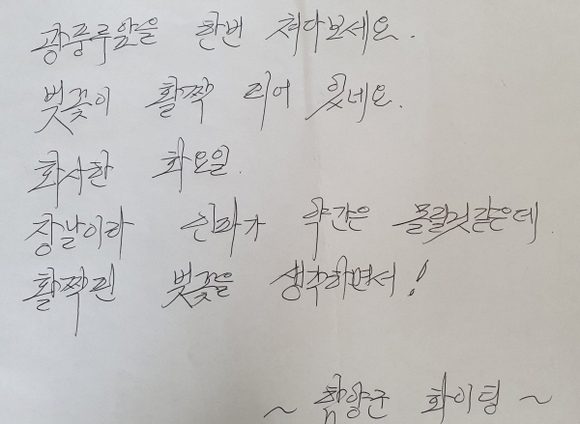 광풍루앞을 한번 쳐다보세요.
벚꽃이 활짝 피어 있네요.
화사한 화요일.
장날이라 인파가 약간은 몰릴것같은데
활짝핀 벚꽃을 생각하면서!
~ 함양군 화이팅 ~